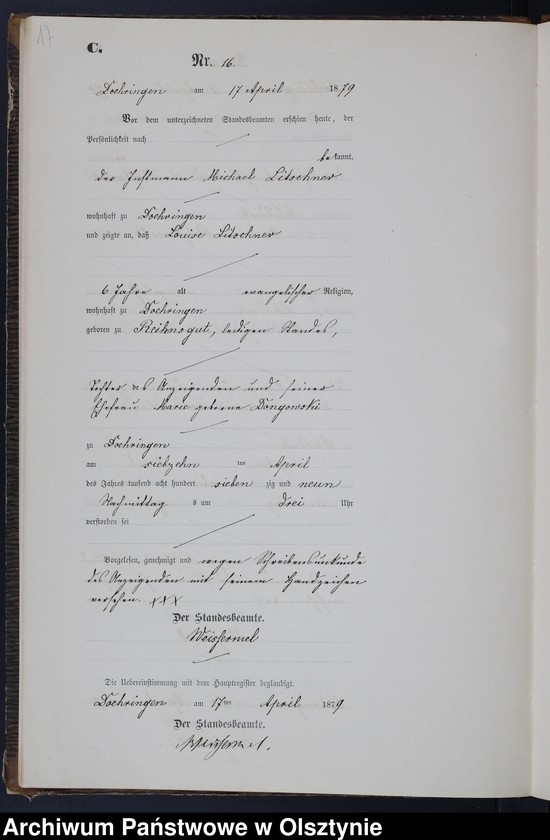 17
C.
Nr. 16.
Doehringen am 17 April 1879
Vor dem unterzeichneten Standesbeamten erschien heute, der
Persönlichkeit nach
bekannt,
der Instmann Michael Litschner
wohnhaft zu Doehringen
und zeigte an, daß Louise Litschner
6 Jahre alt evangelischer Religion,
wohnhaft zu Doehringen
geboren zu Reichnogut, ledigen Standes,
Tochter des Anzeigenden und seiner
Ehefrau Marie geborne Dongowski
zu Doehringen
am siebzehn ten April
des Jahres tausend acht hundert sieben zig und neun
Nachmittag s um drei Uhr
verstorben sei
Vorgelesen, genehmigt und wegen Schreibensunkunde
des Anzeigenden mit seinem Handzeichen
versehen. XXX
Der Standesbeamte.
Weissermel
Die Uebereinstimmung mit dem Hauptregister beglaubigt.
Doehringen am 17ten April 1879
Der Standesbeamte.
Weissermel.
Archiwum Państwowe w Olsztynie